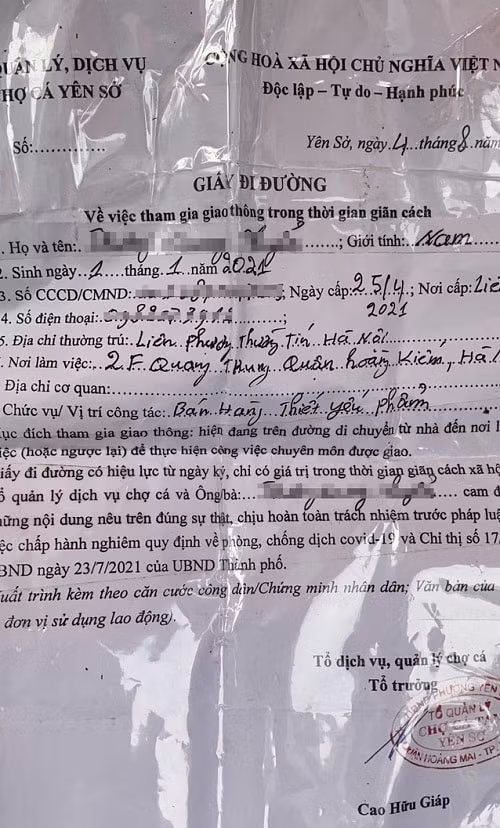 QUẢN LÝ, DỊCH VỤ
CHỢ CÁ YÊN SỞ
CỘNG HOÀ XÃ HỘI CHỦ NGHĨA VIỆT N
Độc lập - Tự do - Hạnh phúc
Số:
Yên Sở, ngày 4 tháng 8 năm
GIẤY ĐI ĐƯỜNG
Về việc tham gia giao thông trong thời gian giãn cách
. Họ và tên: ; Giới tính: Nam
2. Sinh ngày 1 tháng 1 năm 2021
3. Số CCCD/CMND: ; Ngày cấp: 25/4/2021; Nơi cấp:
4. Số điện thoại: ;
5. Địa chỉ thường trú: Liên Phương Thường Tín Hà Nội
. Nơi làm việc: 2.F. Quang Trung Quận Hoàng Kiếm, Hà
Địa chỉ cơ quan:
Chức vụ/ Vị trí công tác: Bán Hàng Thiết yếu phẩm
ục đích tham gia giao thông: hiện đang trên đường di chuyển từ nhà đến nơi l
iệc (hoặc ngược lại) để thực hiện công việc chuyên môn được giao.
iấy đi đường có hiệu lực từ ngày ký, chỉ có giá trị trong thời gian giãn cách xã hộ
ổ quản lý dịch vụ chợ cá và Ông/bà: cam đ
ững nội dung nêu trên đúng sự thật, chịu hoàn toàn trách nhiệm trước pháp luậ
ệc chấp hành nghiêm quy định về phòng, chống dịch covid-19 và Chỉ thị số 17/
BND ngày 23/7/2021 của UBND Thành phố.
uất trình kèm theo căn cước công dân/Chứng minh nhân dân; Văn bản của
đơn vị sử dụng lao động).
Tổ dịch vụ, quản lý chợ cá
Tổ trưởng
PHƯƠNG YÊN
TỔ QUẢN LÝ
CHỢ CÁ
YÊN SỞ
QUẬN HOÀNG MAI - TP.
Cao Hữu Giáp